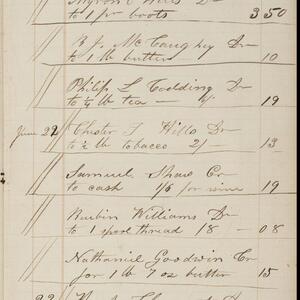 to 1 pr boots 3 50
R J. McCaughey Dr
to 1 lb butter 10
Philip L Codding Dr
to ¼ lb tea — 19
June 22 Chester T Hills Dr
to ½ lb tobacco 2/- 13
Samuel Shaw Cr
to cash 1/6 for wine 19
Rubin Williams Dr
to 1 spool thread 18 — 08
Nathaniel Goodwin Cr
for 1 lb 7 oz butter 15
22